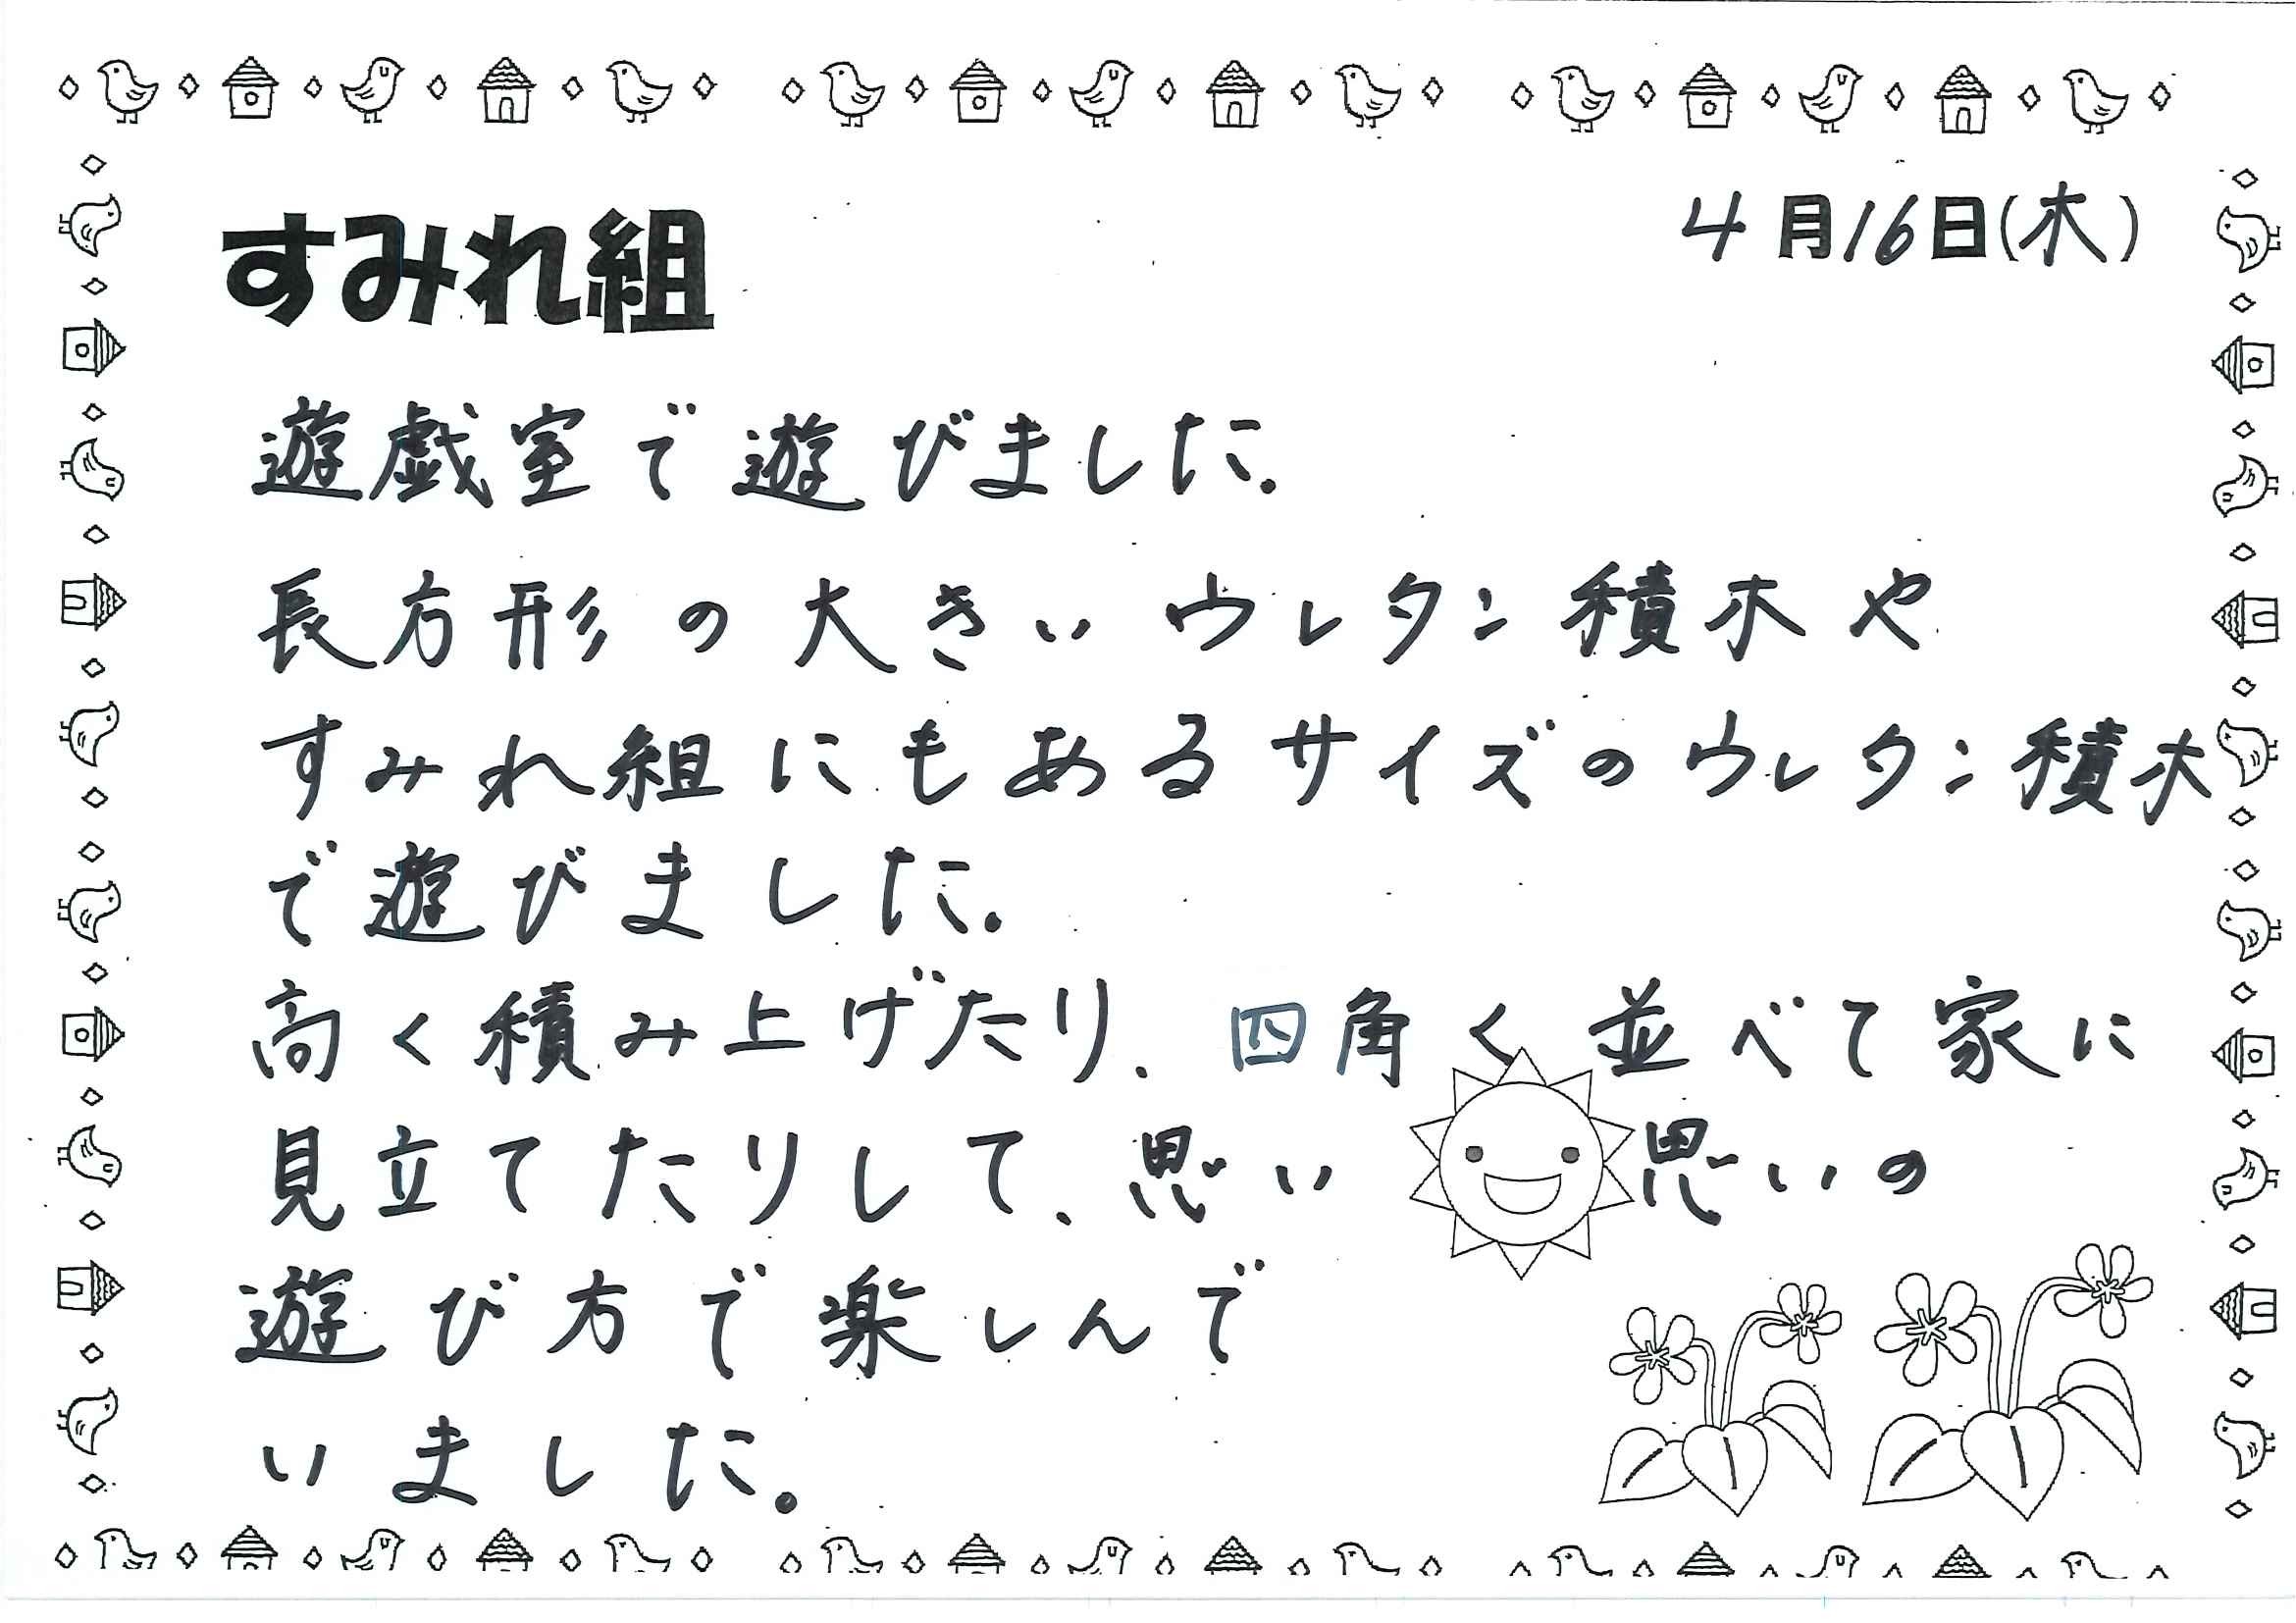 すみれ組
4月16日(木)
遊戯室で遊びました。
長方形の大きいウレタン積木や
すみれ組にもあるサイズのウレタン積木
で遊びました。
高く積み上げたり、四角く並べて家に
見立てたりして、思い思いの
遊び方で楽しんで
いました。